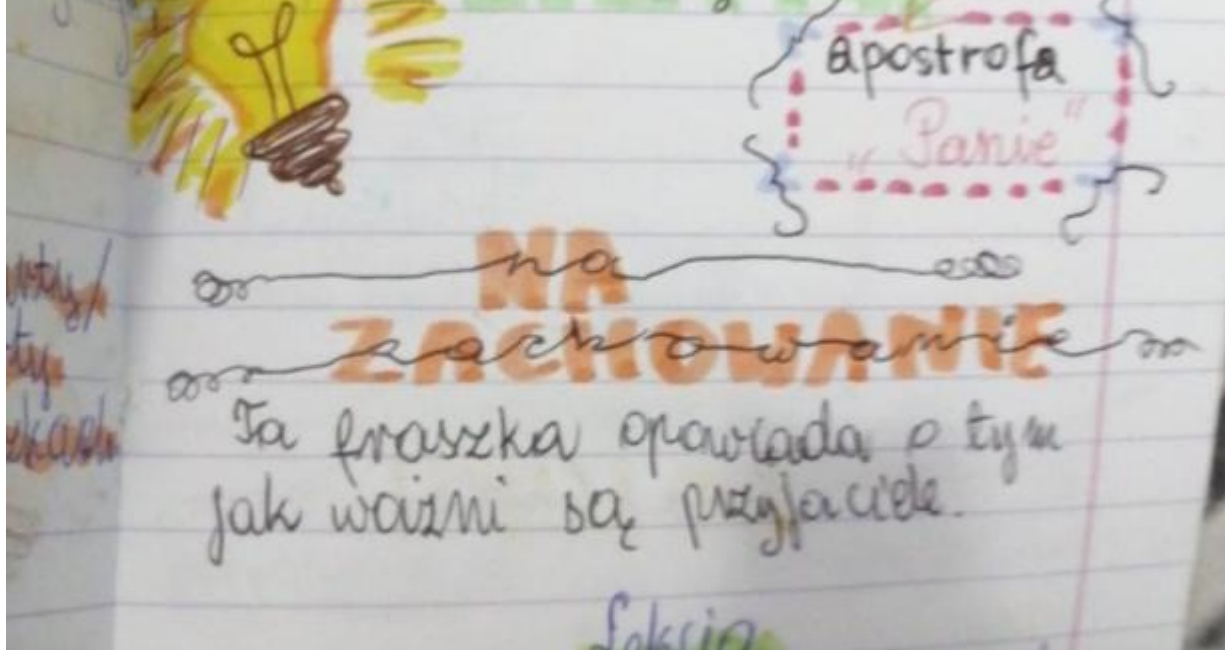 apostrofa
„Panie”
NA
na
ZACHOWANIE
zachowanie
Ta fraszka opowiada o tym
jak ważni są przyjaciele.
Lekcja